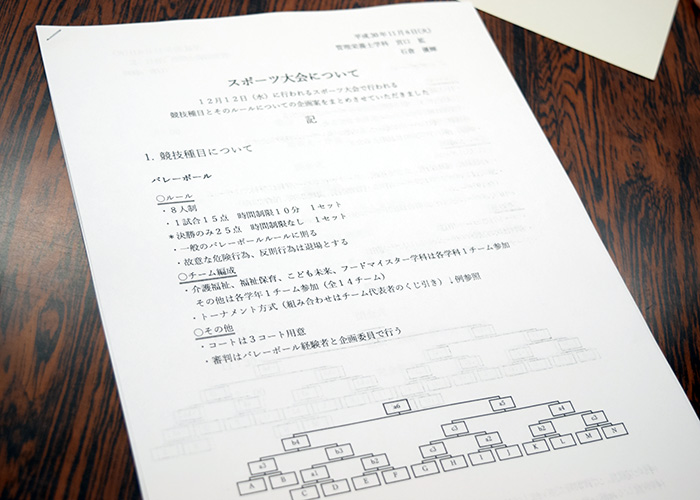 平成30年11月6日(火)
管理栄養士学科 宮口
石倉
スポーツ大会について
12月12日（水）に行われるスポーツ大会で行われる
競技種目とそのルールについての企画案をまとめさせていただきました
記
1. 競技種目について
バレーボール
○ルール
・8人制
・1試合15点 時間制限10分 1セット
*決勝のみ25点 時間制限なし 1セット
・一般のバレーボールルールに則る
・故意な危険行為、反則行為は退場とする
○チーム編成
・介護福祉、福祉保育、こども未来、フードマイスター学科は各学科1チーム参加
その他は各学年1チーム参加（全14チーム）
・トーナメント方式（組み合わせはチーム代表者のくじ引き）↓例参照
○その他
・コートは3コート用意
・審判はバレーボール経験者と企画委員で行う
a6
b4 a5 a4
a3 b2 c3 a2 b2 c3
A B a1 E F G H I J K L M N
C D